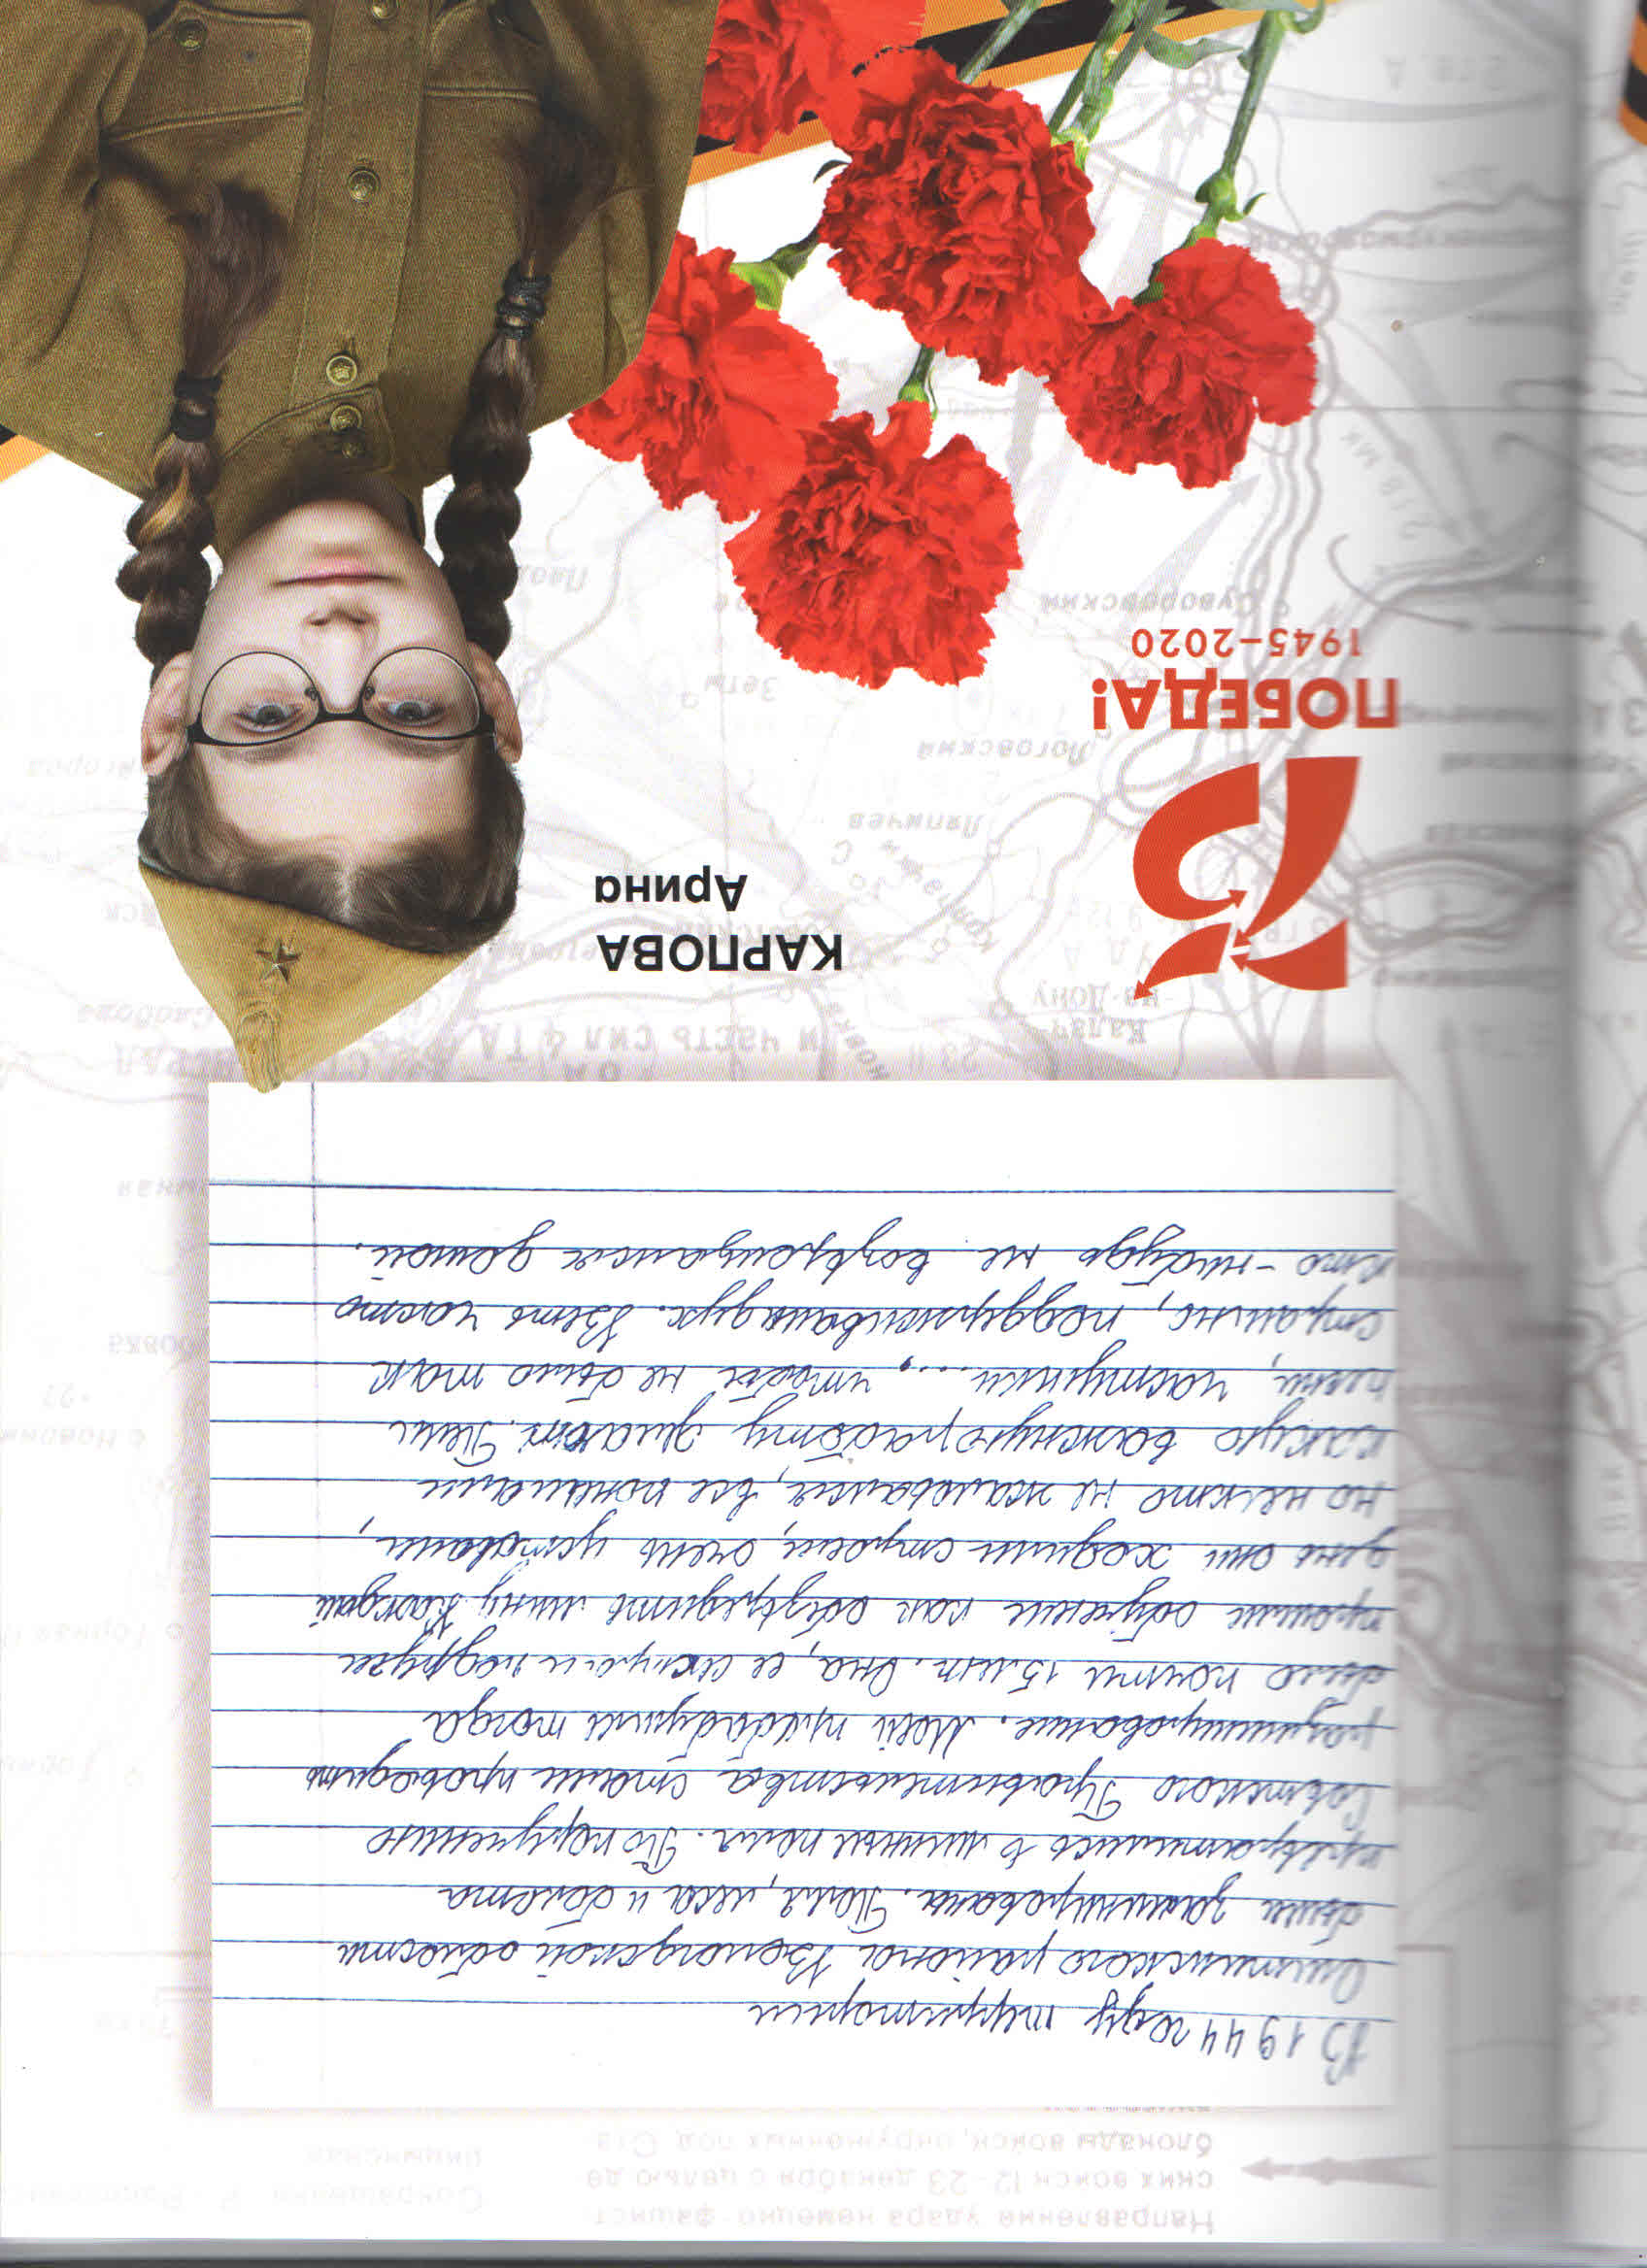 Направление удара немецко-фашист
ских войск 12-23 декабря с целью де
блокады войск, окруженных под Ста
В 1944 году территории
Оштинского района Вологдской области
были заминированы. Поля, леса и болота
превратились в минные поля. По поручению
Советского Правительства стали проводить
разминирование. Моей прабабушке тогда
было почти 15 лет. Она, ее сестра и подруги
прошли обучение как обезвредить мину. Каждый
день они ходили строем, очень уставали,
но никто не жаловался, все понимали
какую важную работу делают. Пели
песни, частушки..., чтобы не было так
страшно, поддерживали дух. Веть часто
кто-нибудь не возвращался домой.
и часть сил 4 ТА
Калач-
на-Дону
КАРПОВА
Арина
75
Ляпичев
Логовский
ПОБЕДА!
Зеты
1945–2020
Суворовский